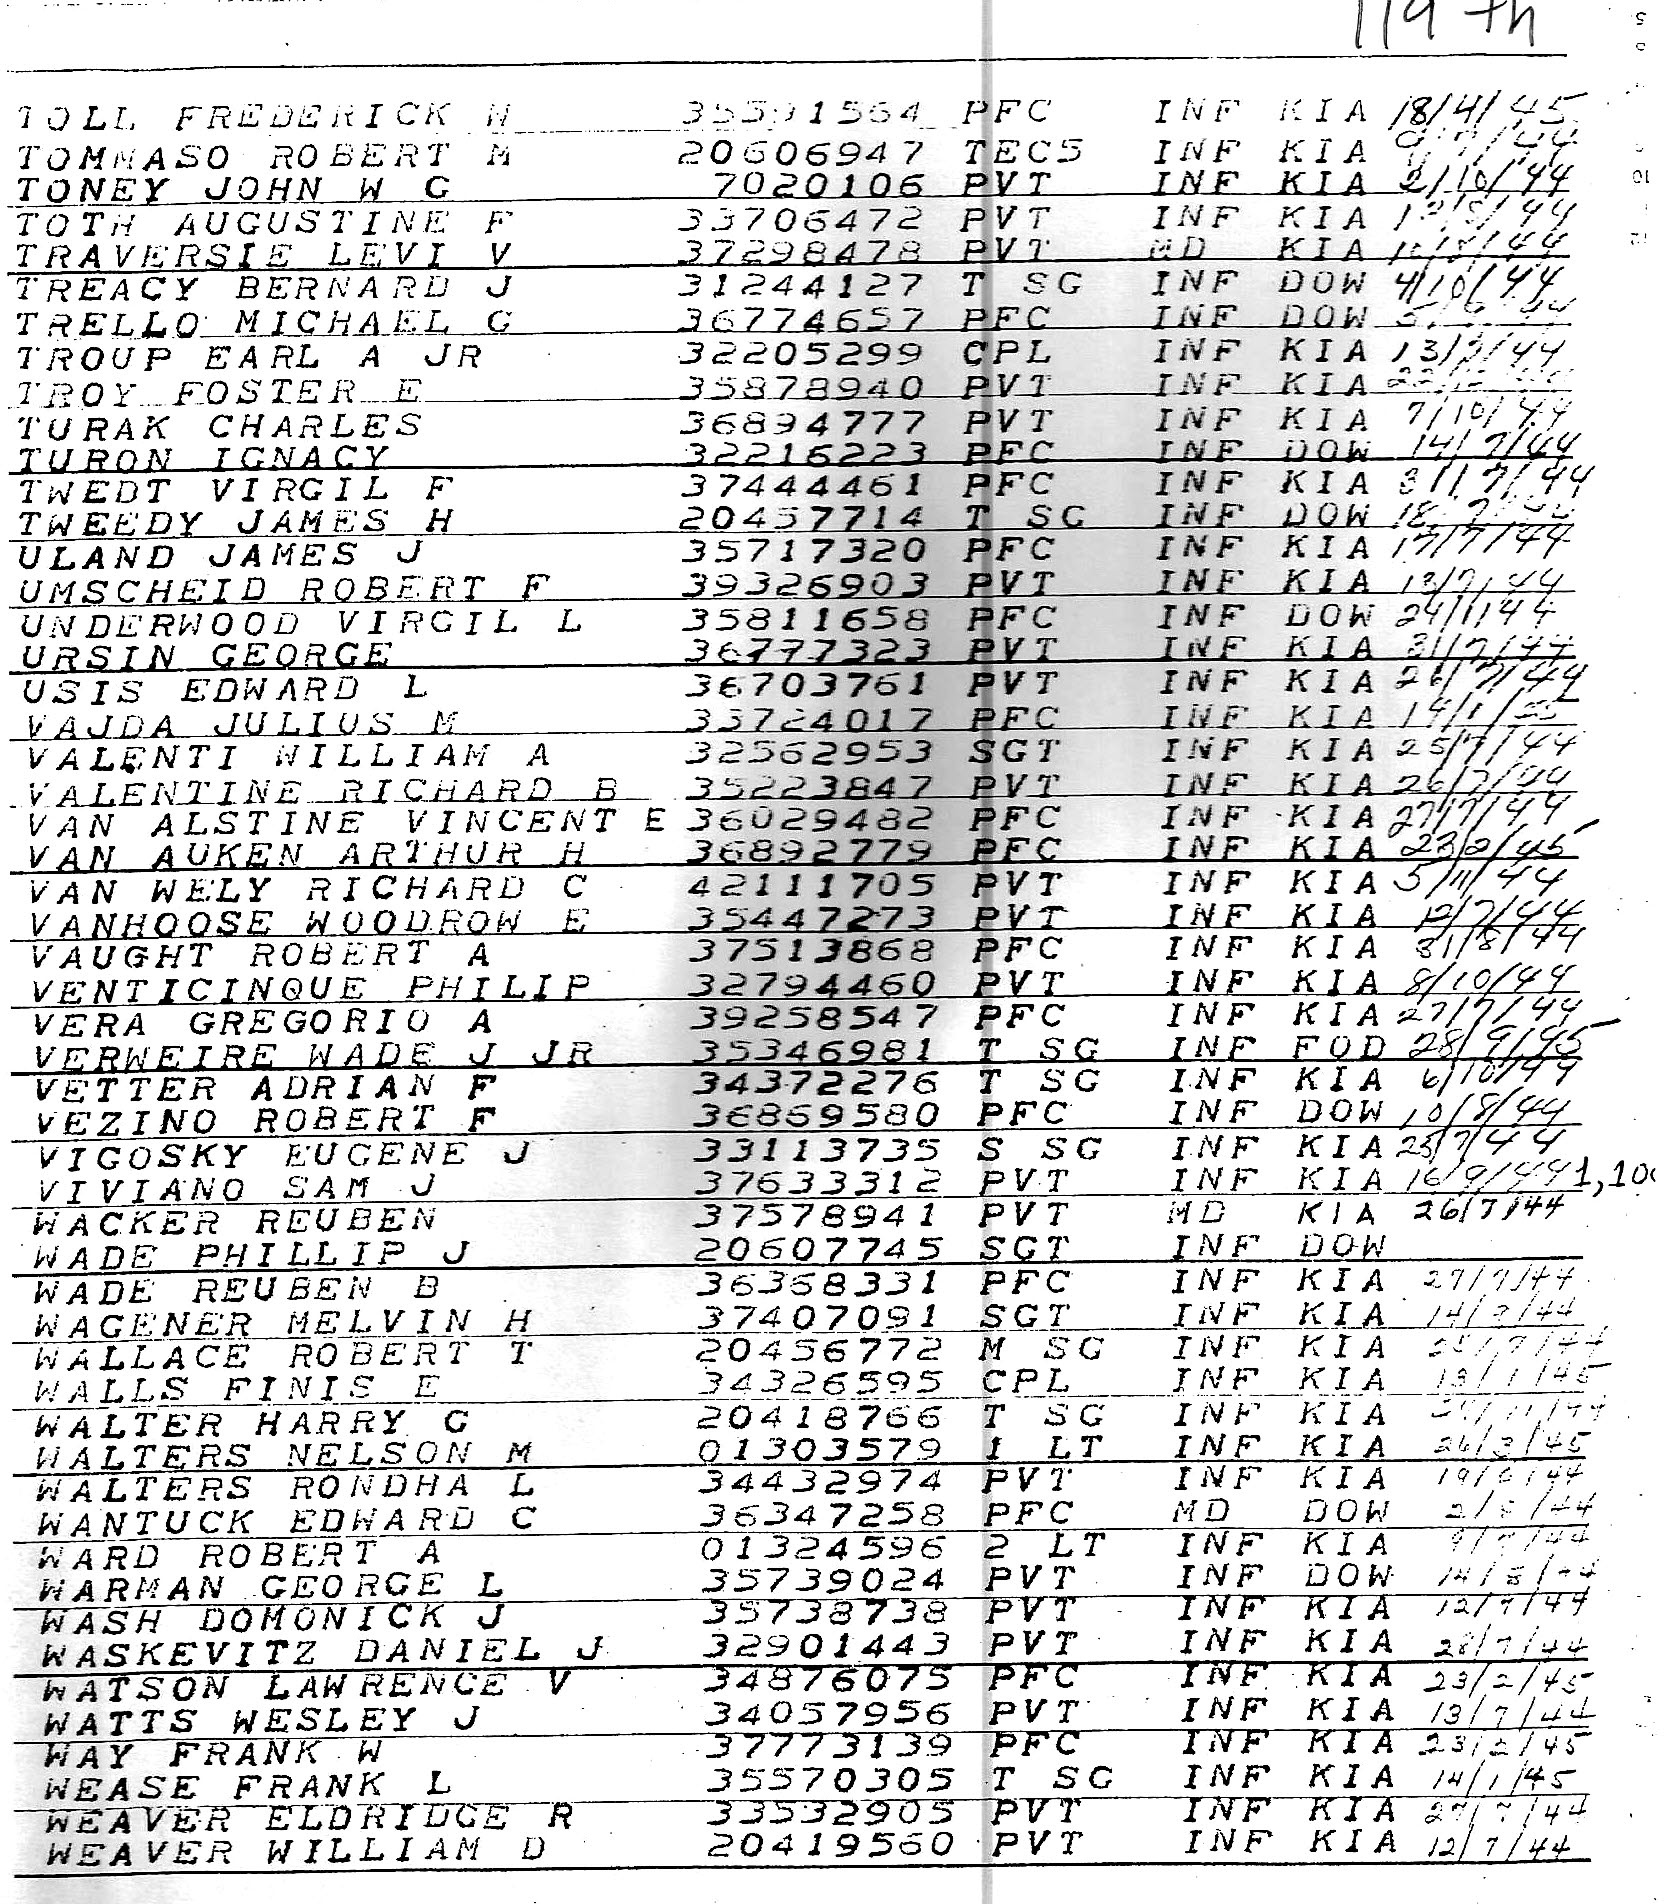 119th
TOLL FREDERICK W 35391564 PFC INF KIA 18/4/45
TOMMASO ROBERT M 20606947 TEC5 INF KIA
TONEY JOHN W G 7020106 PVT INF KIA 2/10/44
TOTH AUGUSTINE F 33706472 PVT INF KIA
TRAVERSIE LEVI V 37298478 PVT MD KIA
TREACY BERNARD J 31244127 T SG INF DOW 4/10/44
TRELLO MICHAEL G 36774657 PFC INF DOW
TROUP EARL A JR 32205299 CPL INF KIA
TROY FOSTER E 35878940 PVT INF KIA
TURAK CHARLES 36894777 PVT INF KIA 7/10/44
TURON IGNACY 32216223 PFC INF DOW 14/7/44
TWEDT VIRGIL F 37444461 PFC INF KIA 31/7/44
TWEEDY JAMES H 20457714 T SG INF DOW
ULAND JAMES J 35717320 PFC INF KIA 17/7/44
UMSCHEID ROBERT F 39326903 PVT INF KIA 13/7/44
UNDERWOOD VIRGIL L 35811658 PFC INF DOW 24/1/44
URSIN GEORGE 36777323 PVT INF KIA 31/7/44
USIS EDWARD L 36703761 PVT INF KIA 26/7/44
VAJDA JULIUS M 33724017 PFC INF KIA
VALENTI WILLIAM A 32562953 SGT INF KIA 25/7/44
VALENTINE RICHARD B 35223847 PVT INF KIA 26/7/44
VAN ALSTINE VINCENT E 36029482 PFC INF KIA 27/7/44
VAN AUKEN ARTHUR H 36892779 PFC INF KIA 23/2/45
VAN WELY RICHARD C 42111705 PVT INF KIA 5/11/44
VANHOOSE WOODROW E 35447273 PVT INF KIA 12/7/44
VAUGHT ROBERT A 37513868 PFC INF KIA 31/8/44
VENTICINQUE PHILIP 32794460 PVT INF KIA 8/10/44
VERA GREGORIO A 39258547 PFC INF KIA 27/7/44
VERWEIRE WADE J JR 35346981 T SG INF FOD 28/9/45
VETTER ADRIAN F 34372276 T SG INF KIA 6/10/44
VEZINO ROBERT F 36869580 PFC INF DOW 10/8/44
VIGOSKY EUGENE J 33113735 S SG INF KIA 25/7/44
VIVIANO SAM J 37633312 PVT INF KIA 16/9/44 1,100
WACKER REUBEN 37578941 PVT MD KIA 26/7/44
WADE PHILLIP J 20607745 SGT INF DOW
WADE REUBEN B 36368331 PFC INF KIA 27/7/44
WAGENER MELVIN H 37407091 SGT INF KIA
WALLACE ROBERT T 20456772 M SG INF KIA
WALLS FINIS E 34326595 CPL INF KIA 13/1/45
WALTER HARRY G 20418766 T SG INF KIA
WALTERS NELSON M 01303579 1 LT INF KIA 26/3/45
WALTERS RONDHA L 34432974 PVT INF KIA
WANTUCK EDWARD C 36347258 PFC MD DOW 2/8/44
WARD ROBERT A 01324596 2 LT INF KIA 9/7/44
WARMAN GEORGE L 35739024 PVT INF DOW 14/8/44
WASH DOMONICK J 35738738 PVT INF KIA 12/7/44
WASKEVITZ DANIEL J 32901443 PVT INF KIA 28/7/44
WATSON LAWRENCE V 34876075 PFC INF KIA 23/2/45
WATTS WESLEY J 34057956 PVT INF KIA 13/7/44
WAY FRANK W 37773139 PFC INF KIA 23/2/45
WEASE FRANK L 35570305 T SG INF KIA 14/1/45
WEAVER ELDRIDGE R 33532905 PVT INF KIA 27/7/44
WEAVER WILLIAM D 20419560 PVT INF KIA 12/7/44